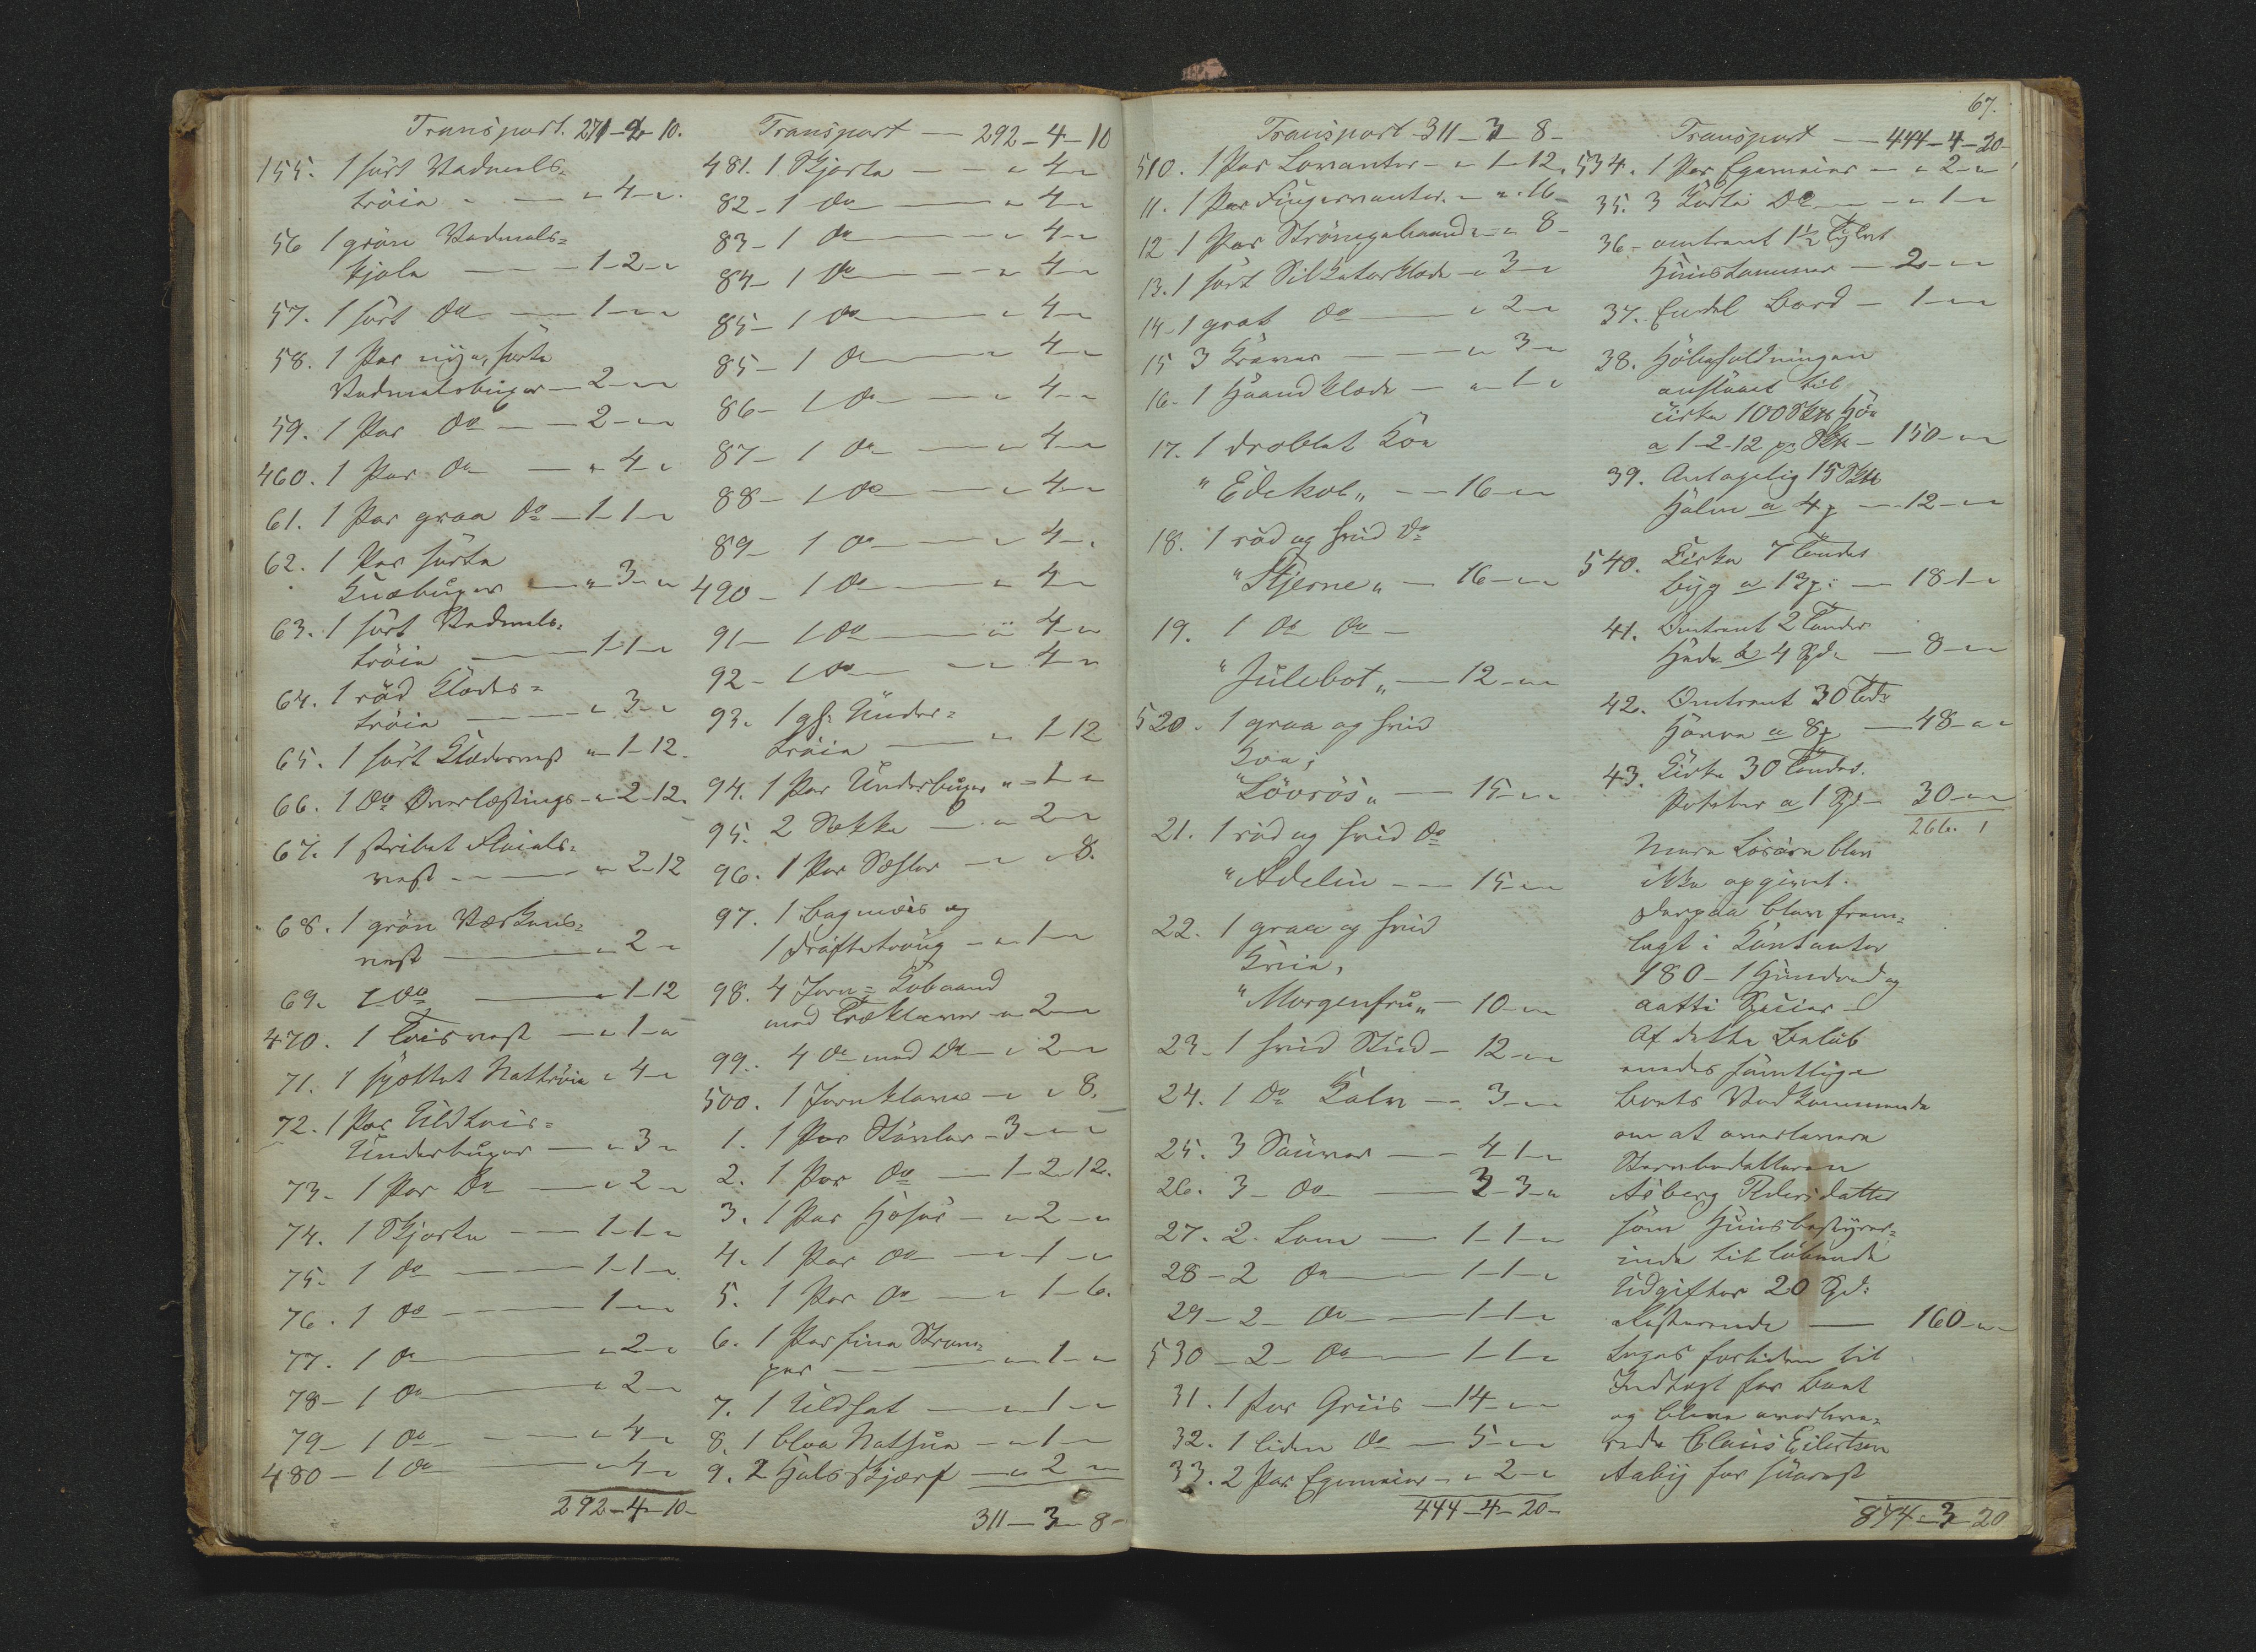 Transport. 271-2-10.
155. 1 sort Vadmels=
tröie - — " 4 - "
56 1 grön Vadmels=
kjole — — - 1-2 - "
57. 1 sort do — 1 - " - "
58. 1 Par nye, sorte
Vadmelsbuxer — 2 - " - "
59. 1 Par do — - 2 - " - "
460. 1 Par do — " - 4 - "
61. 1 Par graa do — 1-1 - "
62. 1 Par sorte
Knæbuxer — " - 3 - "
63. 1 sort Vadmels=
tröie — 1-1 - "
64. 1 röd Klædes=
tröie — " - 3 - "
65. 1 sort Klædesvest " - 1-12.
66. 1 do Overlæstings - " - 2-12.
67. 1 stribet Floiels=
vest - — " - 2-12
68. 1 grön Værkens=
vest — " - 2 - "
69. 1 do — " - 1-12
470. 1 Toisvest — " - 1 - "
71. 1 spøttet Nattröie " - 4 - "
72. 1 Par Uldtois=
Underbuxer — " - 3 - "
73. 1 Par do — " - 2 - "
74. 1 Skjorte — 1-1 - "
75. 1 do — 1-1 - "
76. 1 do — 1 - " - "
77. 1 do — " - 2 - "
78 - 1 do — " - 2 - "
79 - 1 do — " - 4 - "
480 - 1 do — " - 4 - "
292-4-10-
Transport — 292-4-10
481. 1 Skjorte - - " - 4 - "
82 - 1 do — " - 4 - "
83 - 1 do — " - 4 - "
84 - 1 do — " - 4 - "
85 - 1 do — " - 4 - "
85 - 1 do — " - 4 - "
86 - 1 do — " - 4 - "
87 - 1 do — " - 4 - "
88 - 1 do — " - 4 - "
89 - 1 do — " - 4 - "
490 - 1 do — " - 4 - "
91 - 1 do — " - 4 - "
92 - 1 do — " - 4 - "
93. 1 gl: Under=
tröie — " - 1-12
94. 1 Par Underbuxer " - 1 - "
95. 2 Sække — " - 2 - "
96. 1 Par Sæler — " - " 8.
97. 1 Bagmeis og
1 Dröftetroug - " - 1 - "
98. 4 Jern=Kobaand
med Træklaver - " - 2 - "
99. 4 do med do - " - 2 - "
500. 1 Jernklave - " - " 8.
1. 1 Par Stövler - 3 - " - "
2. 1 Par do — 1-2-12.
3. 1 Par Hoser - " - 2 - "
4. 1 Par do — " - 1 - "
5. 1 Par do — " - 1-6.
6. 1 Par fine Ström=
per — " - 1 - "
7. 1 Uldhat — " - 1 - "
8. 1 blaa Nathue - " - 1 - "
9. 2 Halsskjærf — " - 2 - "
311-3-8-
Transport - 311-3-8-
510. 1 Par Lovanter - " - 1-12.
11. 1 Par Fingervanter. - " - " - 16-
12 1 Par Strömpebaand - " - " 8-
13. 1 sort Silketørklæde - " 3 - "
14 - 1 grøt do — " 2 - "
15 3 Kraver — " - 3 - "
16. 1 Haandklæde — " - 1 - "
17. 1 droblet Koe
"Edekol" - - 16 - " - "
18. 1 röd og hvid do
"Stjerne" — 16 - " - "
19. 1 do do -
"Julebot" — 12 - " - "
520. 1 graa og hvid
Koe,
"Lövrös" — 15 - " - "
21. 1 röd og hvid do
"Adelin — 15 - " - "
22. 1 graa og hvid
Kvie,
"Morgenfru" — 10 - " - "
23 - 1 hvid Stud - 12 - " - "
24. 1 do Kalv - - 3 - " - "
25. 3 Sauver - - 4-1 - "
26. 3 - do — 3-3 - "
27. 2. Lam — 1-1 - "
28 - 2 do — 1-1 - "
29 - 2 - do — 1-1 - "
530 - 2 - do — 1-1 - "
31. 1 Par Griis - 14 - " - "
32. 1 liden do — 5 - " - "
33. 2 Par Egemeier - " - 2 - "
444-4-20-
67.
Transport — 444-4-20-
534. 1 Par Egemeier - " - 2 - "
35. 3 Korte do — - " - 1 - "
36 - omtrent 1½ Tylvt
Huustømmer — 2 - " - "
37. Endel Bord — 1 - " - "
38. Höbeholdningen
anslaaet til
cirka 100 Hö
a 1-2-12 pr - 150 - " - "
39. Antagelig 15
Halm a 4 — 12 - " - "
540. Cirka 7 Tønder
Byg a 13 — 18-1 - "
41. Omtrent 2 Tønder
a 4 Spd. — 8 - " - "
42. Omtrent 30 Tdr
Havre a 8 — 48 - " - "
43. Cirka 30 Tønder.
Poteter a 1 Spd - 30 - " - "
266. 1
Mere Lösöre blev
ikke opgivet.
Derpaa blev frem=
lagt i Contanter
180 - 1 Hundred og
aatti Specier -
Af dette Belöb
enedes samtlige
Boets Vedkommende
om at overlevere
Stervbodatteren
Aaberg Pedersdatter
som Huusbestyrer=
inde til löbende
Udgifter 20 Spd:
Resterende — 160 - " -
toges fortiden til
Indtægt for Boet
og bleve overleve=
rede Claus Eilertsen
Aaby for snarest
874-3-20